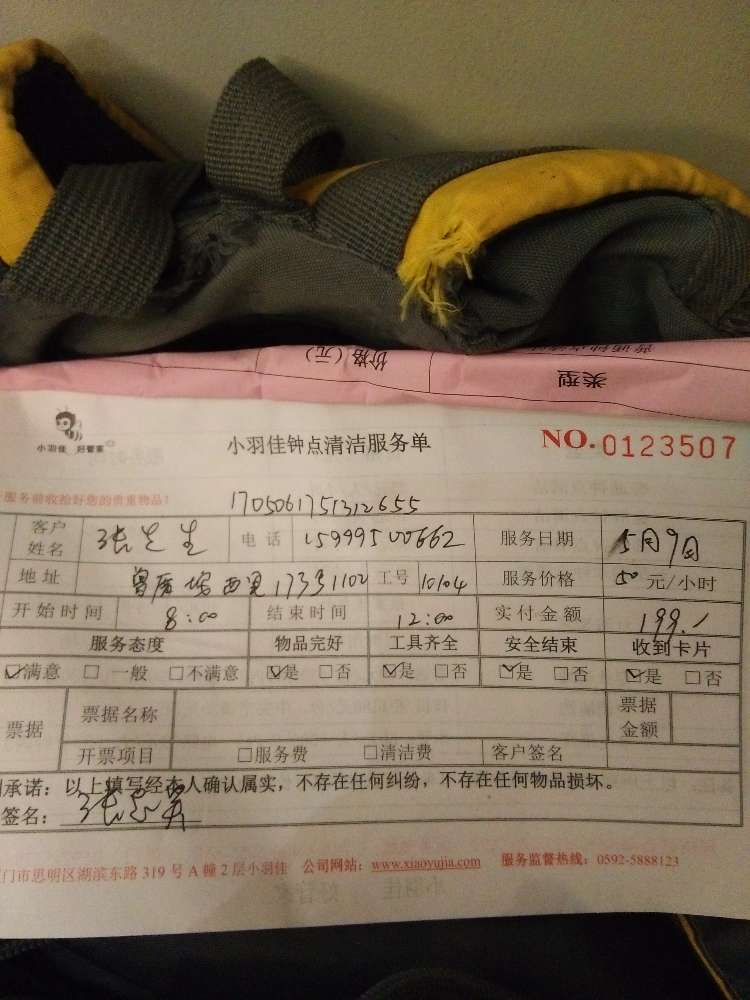 类型 价格（元）
小羽佳 好管家
小羽佳钟点清洁服务单 NO.0123507
服务前收拾好您的贵重物品！ 1705061751312655
客户姓名 张先生 电话 15999500662 服务日期 5月9日
地址 西里173号1102 工号 10104 服务价格 50 元/小时
开始时间 8:00 结束时间 12:00 实付金额 199.
服务态度 物品完好 工具齐全 安全结束 收到卡片
☑满意 □一般 □不满意 ☑是 □否 ☑是 □否 ☑是 □否 ☑是 □否
票据 票据名称 票据金额
开票项目 □服务费 □清洁费 客户签名
承诺：以上填写经本人确认属实，不存在任何纠纷，不存在任何物品损坏。
签名： 张
门市思明区湖滨东路319号A幢2层小羽佳 公司网站：www.xiaoyujia.com 服务监督热线：0592-5888123